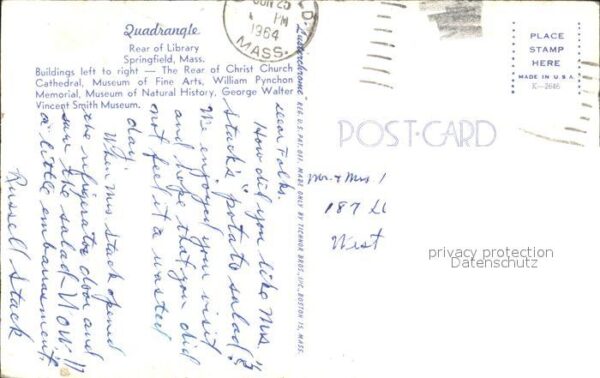 Quadrangle
Rear of Library
Springfield, Mass.
Buildings left to right — The Rear of Christ Church
Cathedral, Museum of Fine Arts, William Pynchon
Memorial, Museum of Natural History, George Walter
Vincent Smith Museum.
PM
1964
MASS.
PLACE
STAMP
HERE
MADE IN U.S.A.
K-2646
"Lusterchrome" REG. U.S. PAT. OFF. MADE ONLY BY TICHNOR BROS., INC., BOSTON 15, MASS.
POST-CARD
Dear Folks,
How did you like Mrs.
Stack's "potato salad"?
We enjoyed your visit
and hope that you did
not feel it a wasted
day.
When Mrs Stack opened
the refrigerator door and
saw the salad - Wow!!!
a little embarrassment.
Russell Stack
Mr. & Mrs.
187
West
privacy protection
Datenschutz